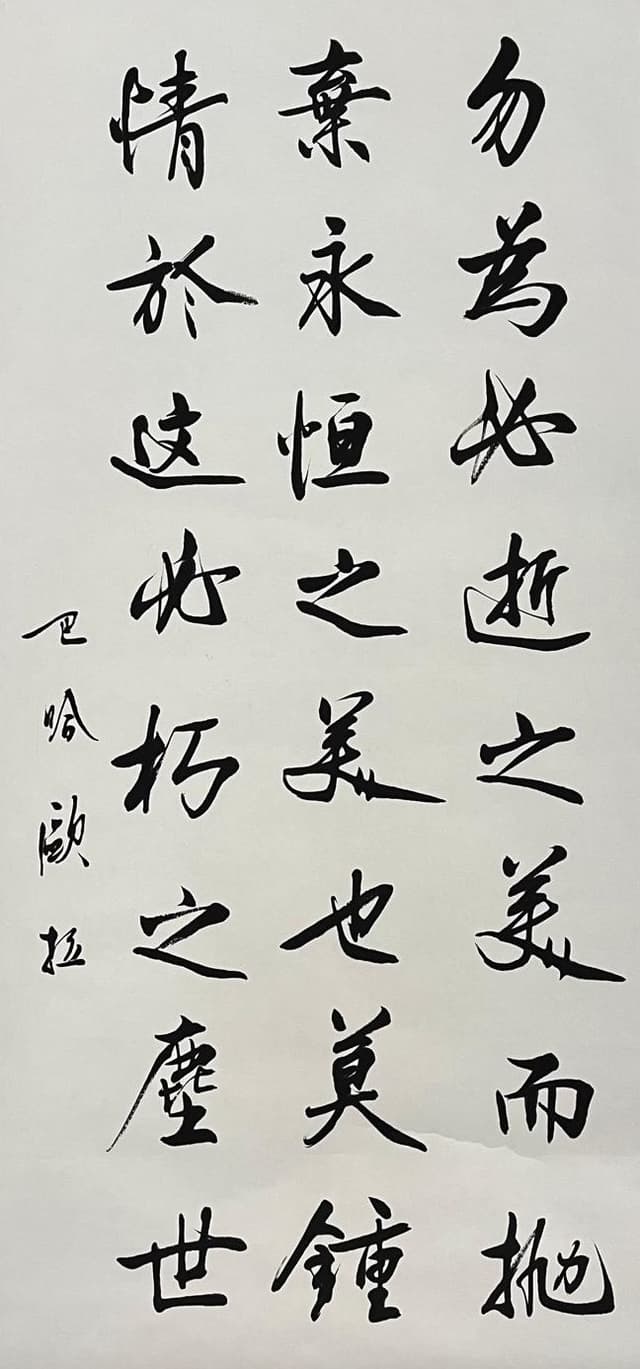 勿為必逝之美而抛
棄永恒之美也莫鍾
情於這必朽之塵世
巴哈歐拉